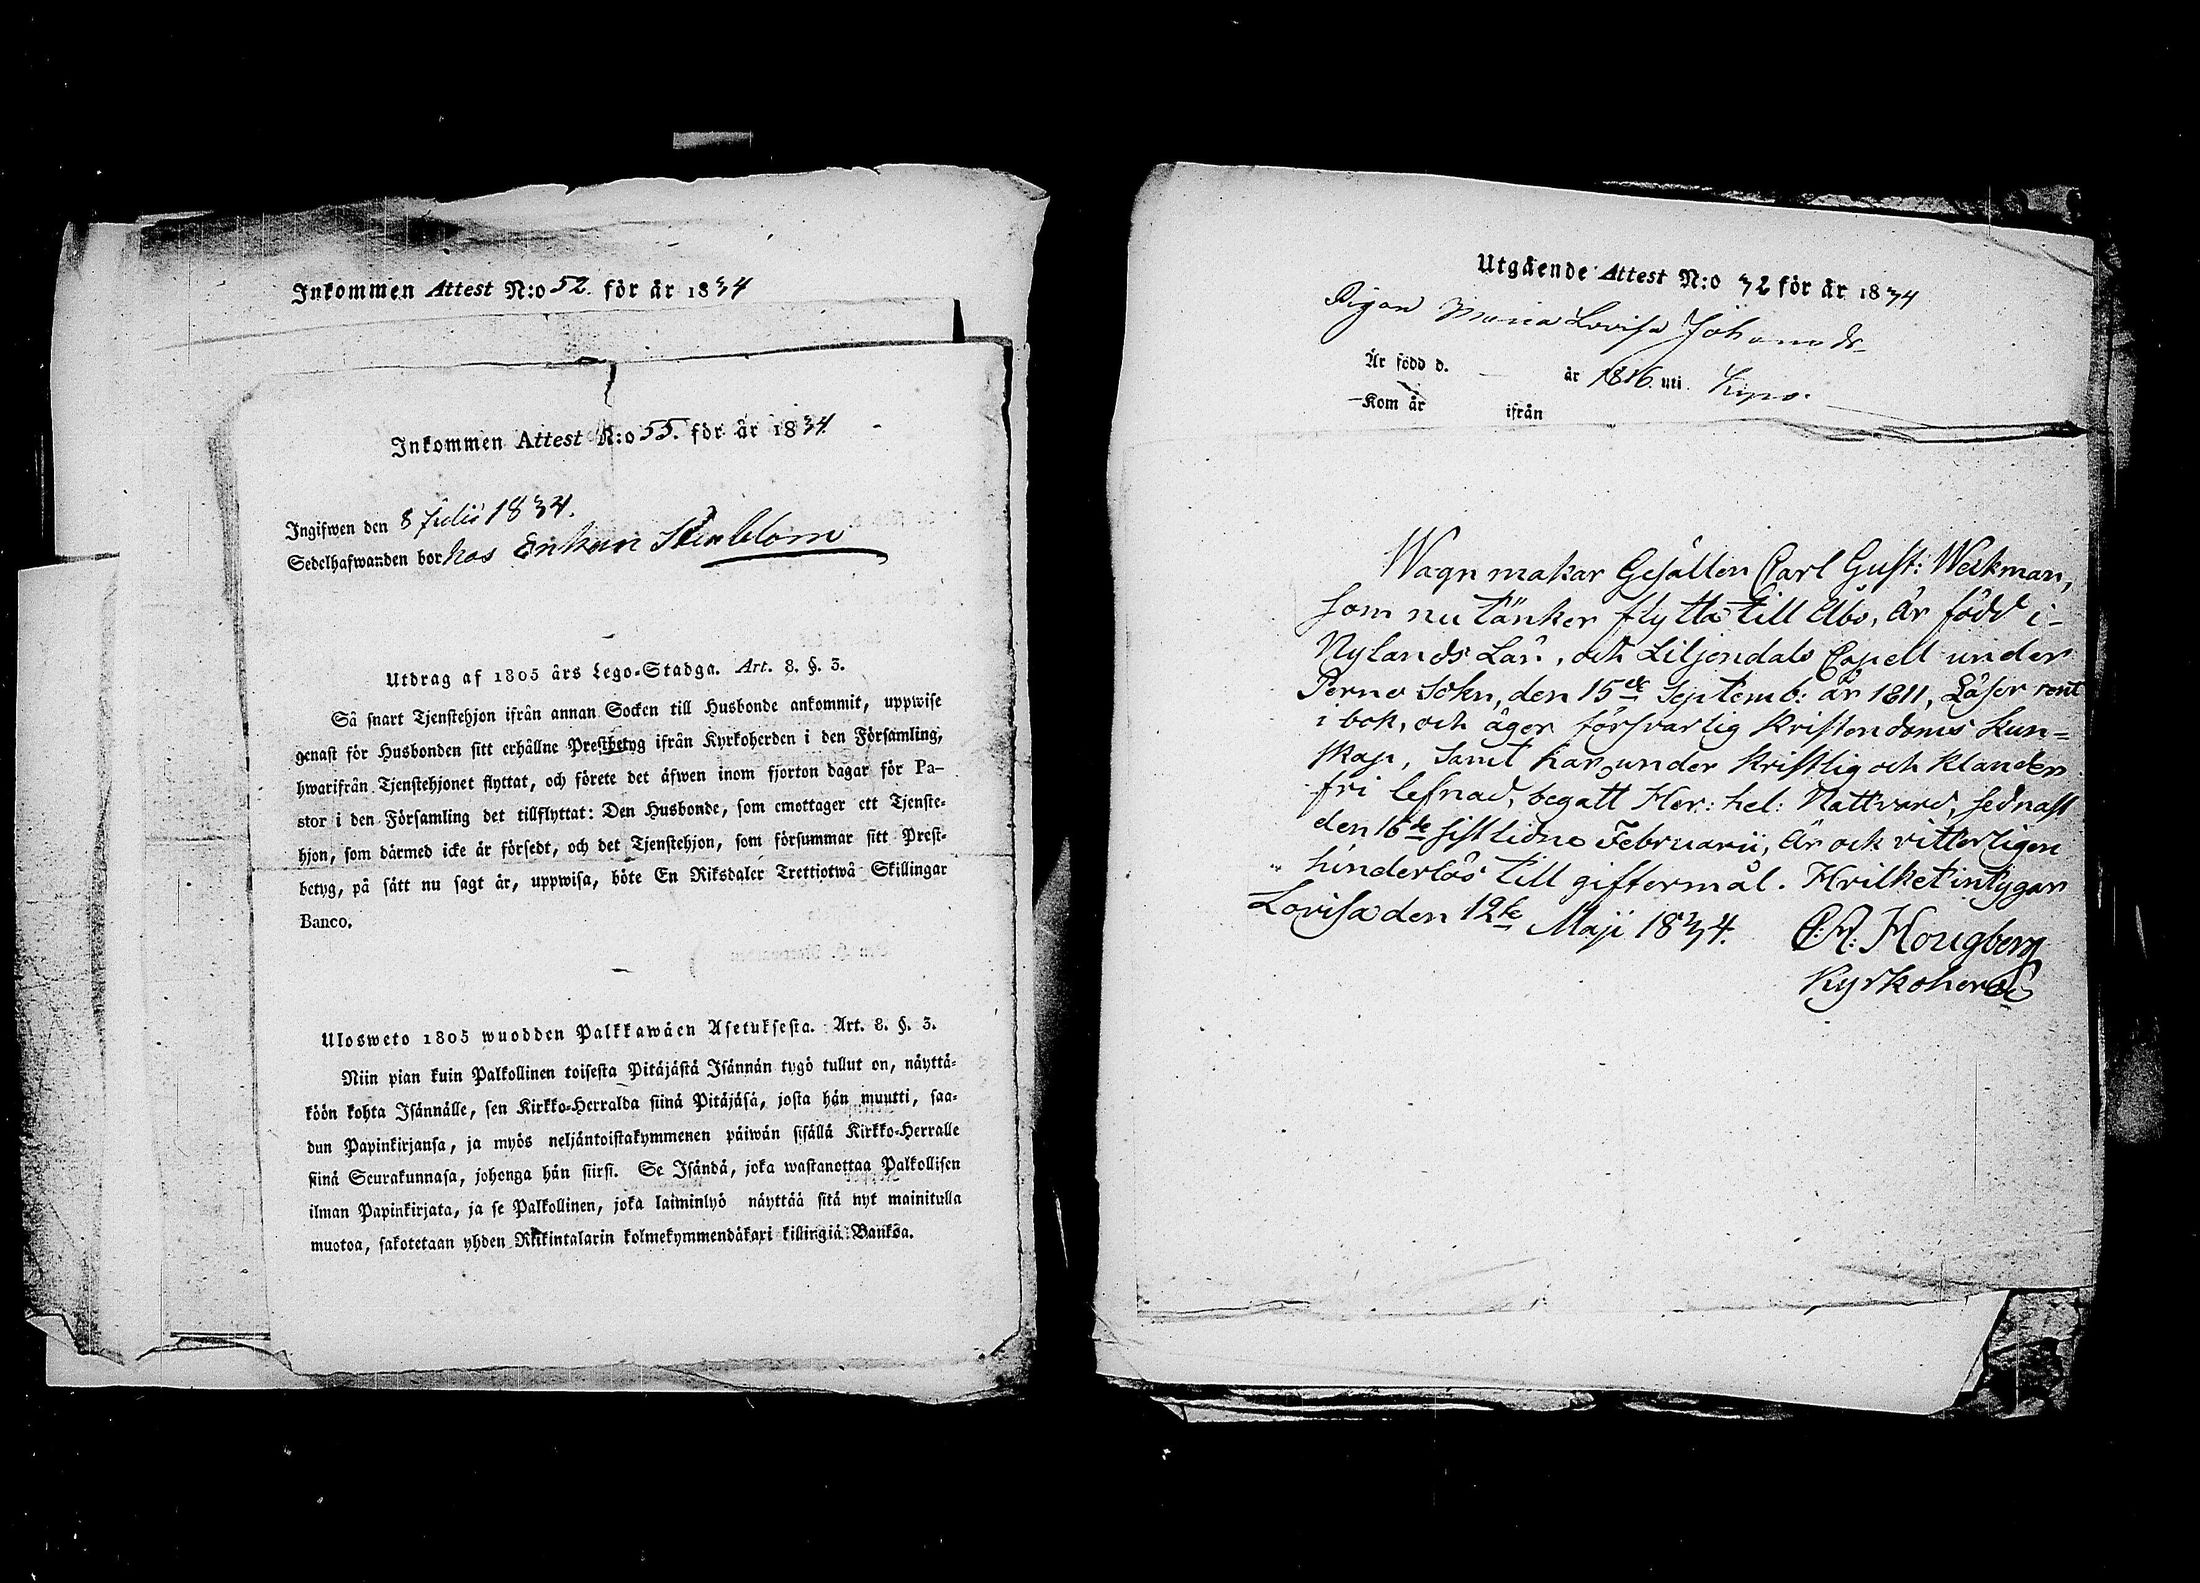 Inkommen Attest N:o 52. för år 1834
Inkommen Attest N:o 55. för år 1834.
Ingifwen den 8 Julii 1834.
Sedelhafwanden bor hos Enkan Stenblom
Utdrag af 1805 års Lego-Stadga. Art. 8. §. 3.
Så snart Tjenstehjon ifrån annan Socken till Husbonde ankommit, uppwise
genast för Husbonden sitt erhållne Prestbetyg ifrån Kyrkoherden i den Församling,
hwarifrån Tjenstehjonet flyttat, och förete det äfwen inom fjorton dagar för Pa-
stor i den Församling det tillflyttat: Den Husbonde, som emottager ett Tjenste-
hjon, som därmed icke är försedt, och det Tjenstehjon, som försummar sitt Prest-
betyg, på sätt nu sagt är, uppwisa, böte En Riksdaler Trettiotwå Skillingar
Banco.
Ulosweto 1805 wuodden Palkkawäen Asetuksesta. Art. 8. §. 3.
Niin pian kuin Palkollinen toisesta Pitäjästä Isännän tygö tullut on, näyttä-
köön kohta Isännälle, sen Kirkko-Herralda siinä Pitäjäsä, josta hän muutti, saa-
dun Papinkirjansa, ja myös neljäntoistakymmenen päiwän sisällä Kirkko-Herralle
siinä Seurakunnasa, johonga hän siirsi. Se Isändä, joka wastanottaa Palkollisen
ilman Papinkirjata, ja se Palkollinen, joka laiminlyö näyttää sitä nyt mainitulla
muotoa, sakotetaan yhden Riikintalarin kolmekymmendäkaxi killingiä Bankoa.
Utgående Attest N:o 32 för år 1834
Pigan Maria Lovisa Johansdr
Är född d. — år 1816. uti Kimo.
Kom år ifrån
Wagnmakar Gesällen Carl Gust: Weckman,
som nu tänker flytta till Åbo, är född i
Nylands Län, och Liljendals Capell under
Perno Sokn, den 15de Septemb: år 1811, Läser rent
i bok, och äger försvarlig Kristendoms Kun=
skap, samt har, under Kristlig och Klander
fri lefnad, begått Her: hel: Nattvard, sednast
den 16de sistlidne Februarii, Är ock vitterligen
hinderlös till giftermål. Hvilket intygar
Lovisa den 12te Maji 1834. C: A: Hougberg
Kyrkoherde